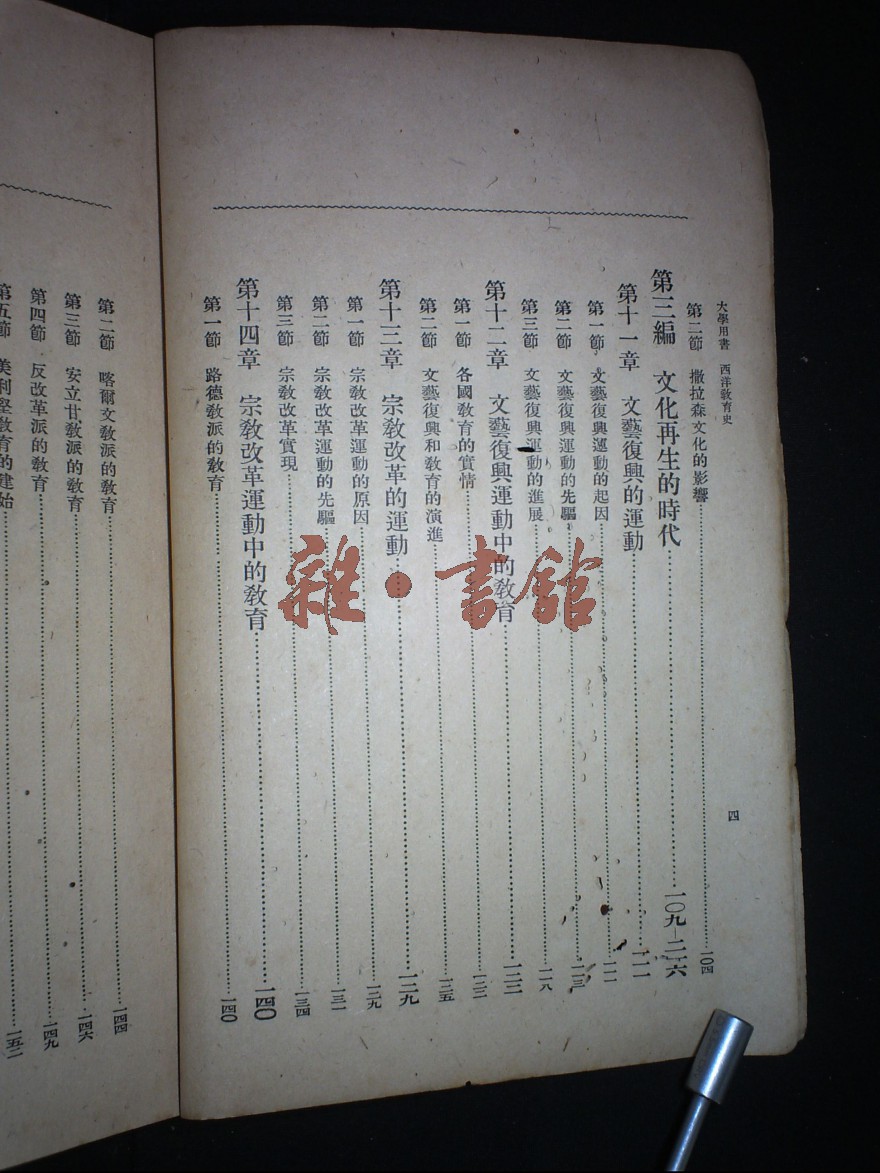 大學用書 西洋教育史 四
第二節 撒拉森文化的影響 一〇四
第三編 文化再生的時代 一〇九—二一六
第十一章 文藝復興的運動 一一一
第一節 文藝復興運動的起因 一一一
第二節 文藝復興運動的先驅 一一三
第三節 文藝復興運動的進展 一一八
第十二章 文藝復興運動中的教育 一二二
第一節 各國教育的實情 一二二
第二節 文藝復興和教育的演進 一二五
第十三章 宗教改革的運動 一二九
第一節 宗教改革運動的原因 一二九
第二節 宗教改革運動的先驅 一三一
第三節 宗教改革實現 一三四
第十四章 宗教改革運動中的教育 一四〇
第一節 路德教派的教育 一四〇
第二節 喀爾文教派的教育 一四四
第三節 安立甘教派的教育 一四六
第四節 反改革派的教育 一四九
第五節 美利堅教育的建始 一五二
雜·書館